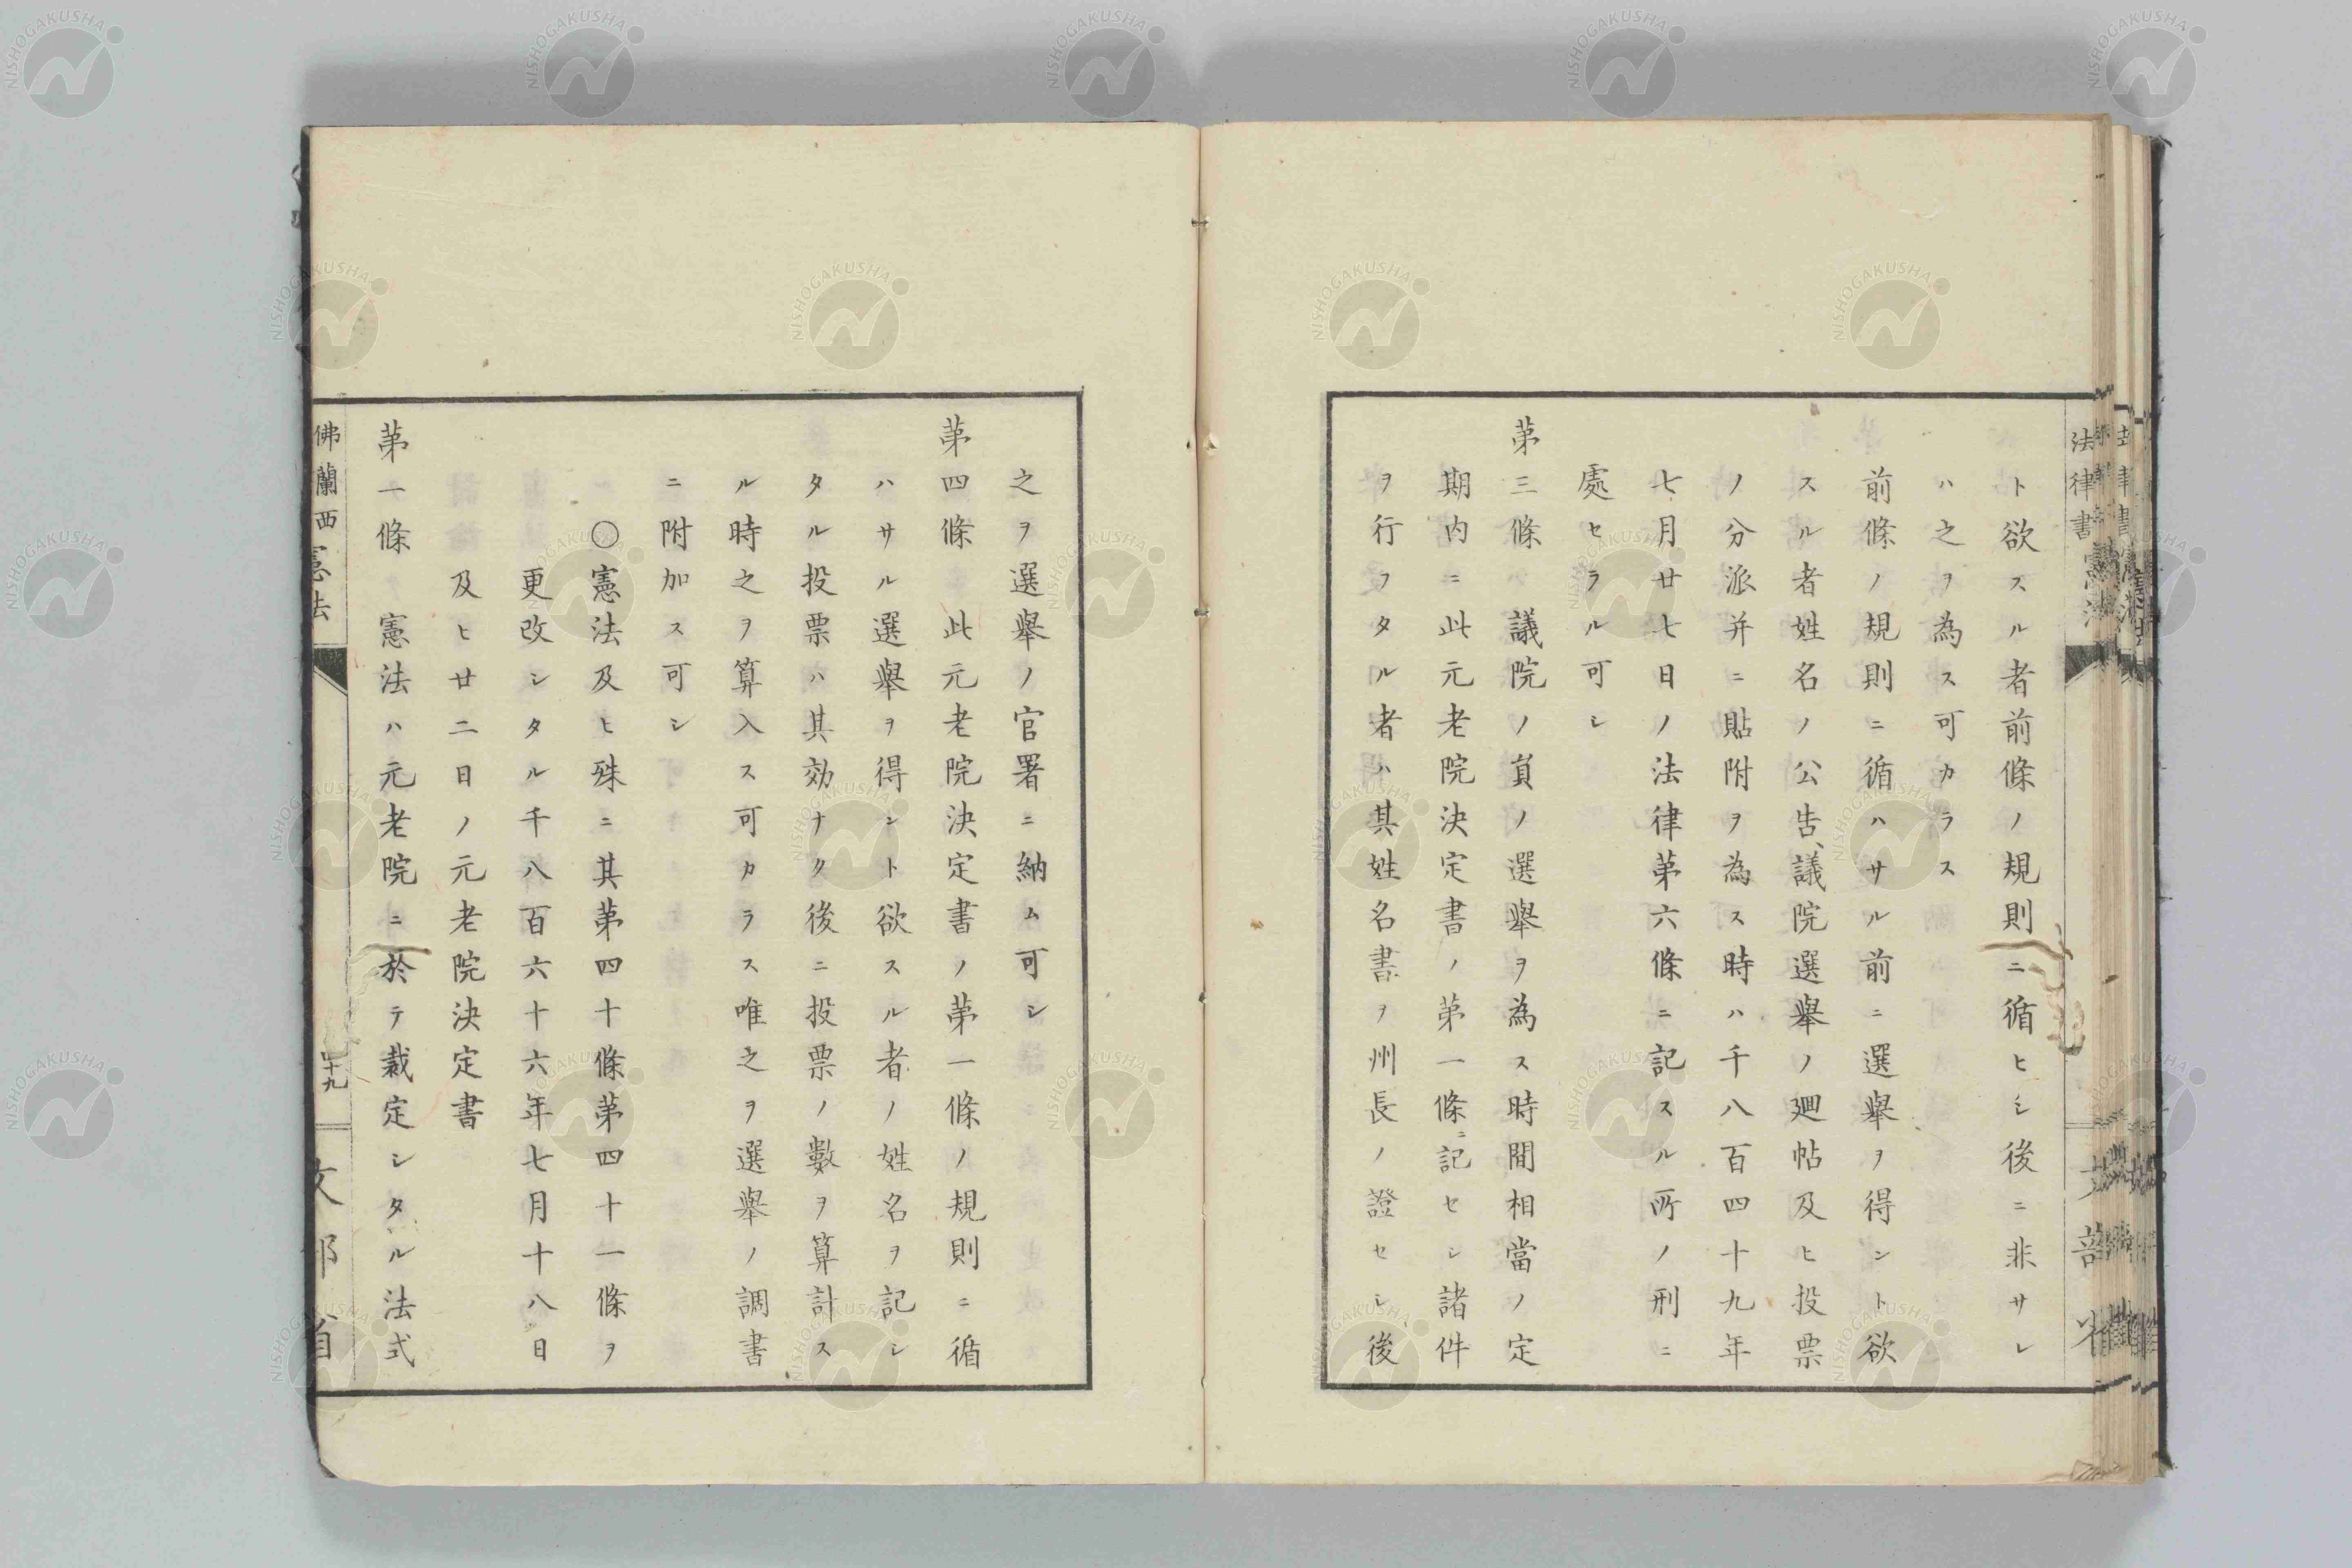 ト欲スル者前條ノ規則ニ循ヒシ後ニ非サレ
ハ之ヲ為ス可カラス
前條ノ規則ニ循ハサル前ニ選舉ヲ得ント欲
スル者姓名ノ公告、議院選舉ノ廻帖及ヒ投票
ノ分派并ニ貼附ヲ為ス時ハ千八百四十九年
七月廿七日ノ法律第六條ニ記スル所ノ刑ニ
處セラル可シ
第三條 議院ノ員ノ選舉ヲ為ス時間相當ノ定
期内ニ此元老院決定書ノ第一條ニ記セシ諸件
ヲ行フタル者ハ其姓名書ヲ州長ノ證セシ後
之ヲ選舉ノ官署ニ納ム可シ
第四條 此元老院決定書ノ第一條ノ規則ニ循
ハサル選舉ヲ得ント欲スル者ノ姓名ヲ記シ
タル投票ハ其効ナク後ニ投票ノ數ヲ算計ス
ル時之ヲ算入ス可カラス唯之ヲ選舉ノ調書
ニ附加ス可シ
〇憲法及ヒ殊ニ其第四十條第四十一條ヲ
更改シタル千八百六十六年七月十八日
及ヒ廿二日ノ元老院決定書
第一條 憲法ハ元老院ニ於テ裁定シタル法式
佛蘭西憲法
十九
文部省
法律書
NISHOGAKUSHA